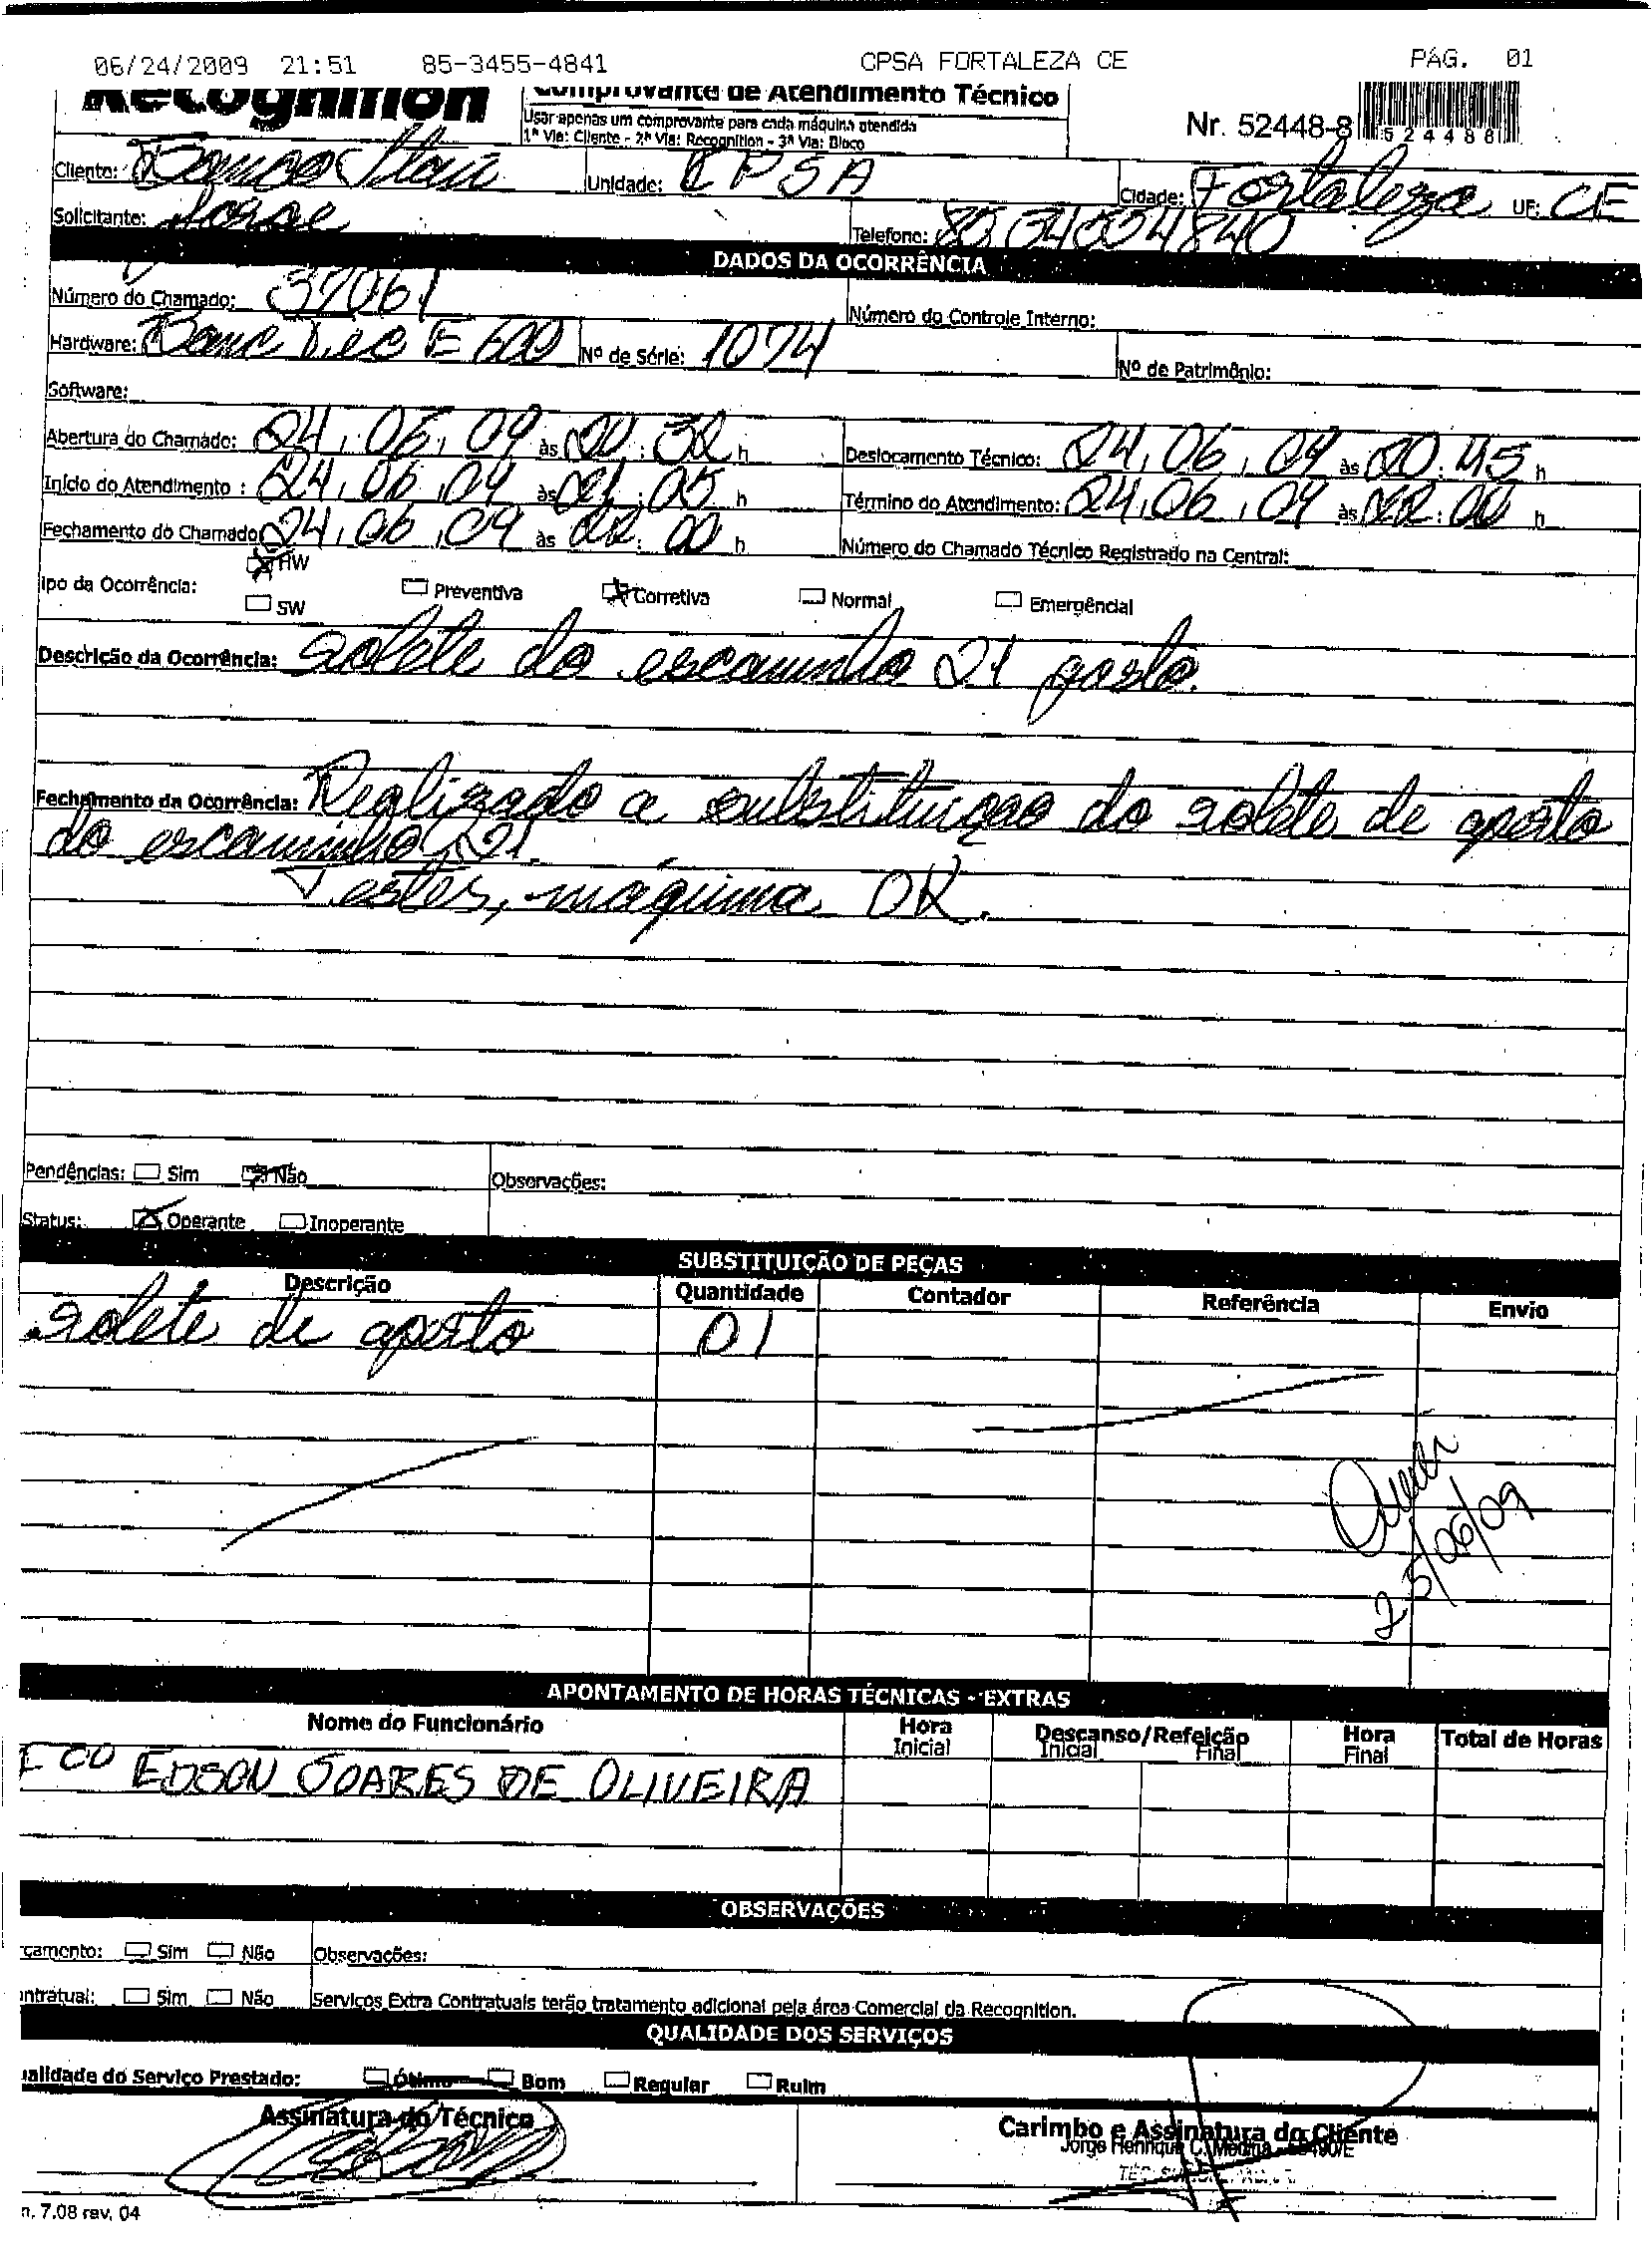 06/24/2009 21:51 85-3455-4841 CPSA FORTALEZA CE PÁG. 01
Recognition Comprovante de Atendimento Técnico
Usar apenas um comprovante para cada máquina atendida
1ª Via: Cliente - 2ª Via: Recognition - 3ª Via: Bloco
Nr. 52448-8
524488
Cliente: Banco Itau Unidade: CPSA Cidade: Fortaleza UF: CE
Solicitante: Jorge Telefone:
DADOS DA OCORRÊNCIA
Número do Chamado: 37061 Número do Controle Interno:
Hardware: Banc Tec E 600 Nº de Série: 1074 Nº de Patrimônio:
Software:
Abertura do Chamado: 24, 06, 09 às 20:32 h Deslocamento Técnico: 24, 06, 09 às 20:45 h
Início do Atendimento : 24, 06, 09 às 21:05 h Término do Atendimento: 24, 06, 09 às 22:00 h
Fechamento do Chamado 24, 06, 09 às 22:00 h Número do Chamado Técnico Registrado na Central:
HW
ipo da Ocorrência: SW Preventiva Corretiva Normal Emergêncial
Descrição da Ocorrência: rolete do escaninho 21 gasto.
Fechamento da Ocorrência: Realizado a substituiçao do rolete de aperto
do escaninho 21.
Testes, máquina OK.
Pendências: Sim Não Observações:
Status: Operante Inoperante
SUBSTITUIÇÃO DE PEÇAS
Descrição Quantidade Contador Referência Envio
rolete de aperto 01
25/06/09
APONTAMENTO DE HORAS TÉCNICAS - EXTRAS
Nome do Funcionário Hora Inicial Descanso/Refeição Inicial Final Hora Final Total de Horas
FCO EDSON SOARES DE OLIVEIRA
OBSERVAÇÕES
çamento: Sim Não Observações:
ntratual: Sim Não Serviços Extra Contratuais terão tratamento adicional pela área Comercial da Recognition.
QUALIDADE DOS SERVIÇOS
alidade do Serviço Prestado: Ótimo Bom Regular Ruim
Assinatura do Técnico Carimbo e Assinatura do Cliente
Jorge Henrique C.
n. 7.08 rev. 04